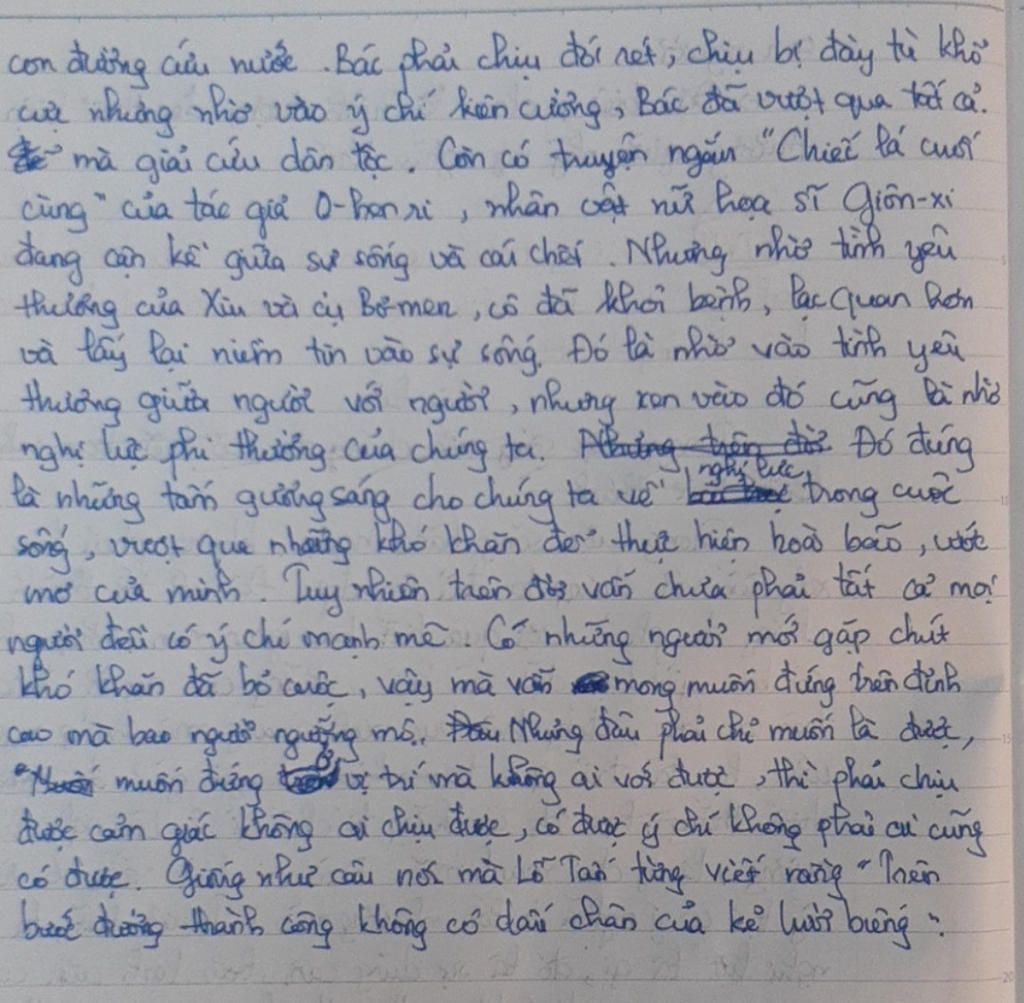 con đường cứu nước. Bác phải chịu đói rét, chịu bị đày từ khổ
cực nhưng nhờ vào ý chí kiên cường, Bác đã vượt qua tất cả.
để mà giải cứu dân tộc. Còn có truyện ngắn "Chiếc lá cuối
cùng" của tác giả O-hen ri, nhân vật nữ họa sĩ Giôn-xi
đang cận kề giữa sự sống và cái chết. Nhưng nhờ tình yêu
thương của Xiu và cụ Bơ-men, cô đã khỏi bệnh, lạc quan hơn
và lấy lại niềm tin vào sự sống. Đó là nhờ vào tình yêu
thương giữa người với người, nhưng xen vào đó cũng là nhờ
nghị lực phi thường của chúng ta. Đó đúng
là những tấm gương sáng cho chúng ta về nghị lực trong cuộc
sống, vượt qua những khó khăn để thực hiện hoài bão, ước
mơ của mình. Tuy nhiên trên đời vẫn chưa phải tất cả mọi
người đều có ý chí mạnh mẽ. Có những người mới gặp chút
khó khăn đã bỏ cuộc, vậy mà vẫn mong muốn đứng trên đỉnh
cao mà bao người ngưỡng mộ. Nhưng đâu phải chỉ muốn là được,
"muốn đứng ở vị trí mà không ai với được, thì phải chịu
được cảm giác không ai chịu được, có được ý chí không phải ai cũng
có được. Giống như câu nói mà Lỗ Tấn từng viết rằng "Trên
bước đường thành công không có dấu chân của kẻ lười biếng".